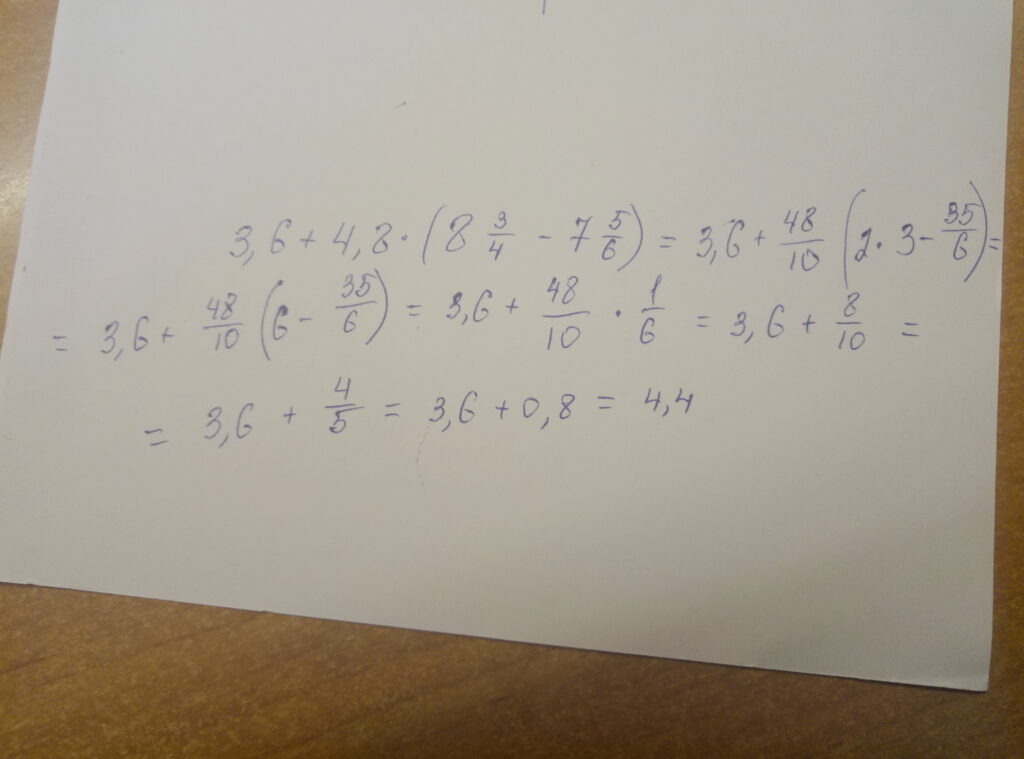 3,6 + 4,8 · (8 3/4 - 7 5/6) = 3,6 + 48/10 (2 · 3 - 35/6) =
= 3,6 + 48/10 (6 - 35/6) = 3,6 + 48/10 · 1/6 = 3,6 + 8/10 =
= 3,6 + 4/5 = 3,6 + 0,8 = 4,4